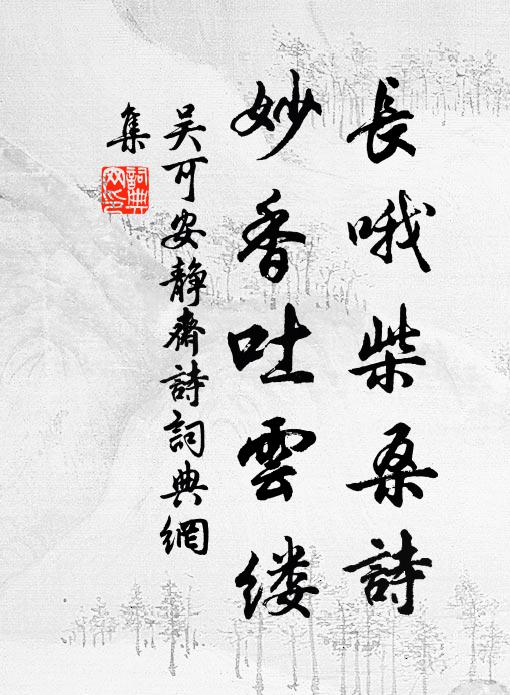 長哦柴桑詩
妙香吐雲缕
吴可安静齋詩詞典網
集
詞典
网